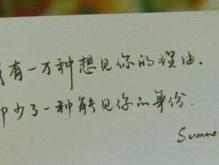 有一万种想见你的理由。
少了一种能见你的身份.
Summe